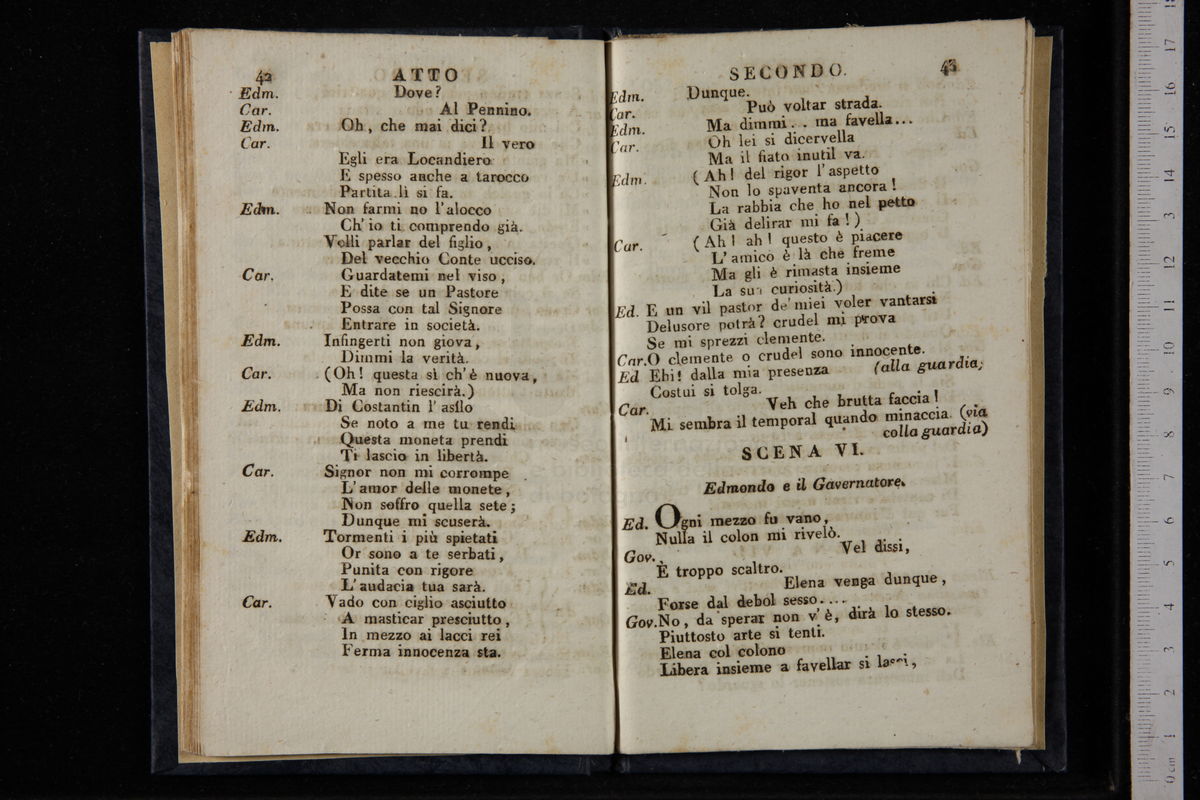 42 ATTO
Edm. Dove?
Car. Al Pennino.
Edm. Oh, che mai dici?
Car. Il vero
Egli era Locandiero
E spesso anche a tarocco
Partita lì si fa.
Edm. Non farmi no l'alocco
Ch'io ti comprendo già.
Volli parlar del figlio,
Del vecchio Conte ucciso.
Car. Guardatemi nel viso,
E dite se un Pastore
Possa con tal Signore
Entrare in società.
Edm. Infingerti non giova,
Dimmi la verità.
Car. (Oh! questa sì ch'è nuova,
Ma non riescirà.)
Edm. Di Costantin l'asilo
Se noto a me tu rendi
Questa moneta prendi
Ti lascio in libertà.
Car. Signor non mi corrompe
L'amor delle monete,
Non soffro quella sete;
Dunque mi scuserà.
Edm. Tormenti i più spietati
Or sono a te serbati,
Punita con rigore
L'audacia tua sarà.
Car. Vado con ciglio asciutto
A masticar presciutto,
In mezzo ai lacci rei
Ferma innocenza sta.
SECONDO. 43
Edm. Dunque.
Car. Può voltar strada.
Edm. Ma dimmi.. ma favella...
Car. Oh lei si dicervella
Ma il fiato inutil va.
Edm. (Ah! del rigor l'aspetto
Non lo spaventa ancora!
La rabbia che ho nel petto
Già delirar mi fa!)
Car. (Ah! ah! questo è piacere
L'amico è là che freme
Ma gli è rimasta insieme
La sua curiosità.)
Ed. E un vil pastor de'miei voler vantarsi
Delusore potrà? crudel mi prova
Se mi sprezzi clemente.
Car. O clemente o crudel sono innocente.
Ed Ehi! dalla mia presenza (alla guardia;
Costui si tolga.
Car. Veh che brutta faccia!
Mi sembra il temporal quando minaccia. (via
colla guardia)
SCENA VI.
Edmondo e il Gavernatore.
Ed. Ogni mezzo fu vano,
Nulla il colon mi rivelò.
Gov. Vel dissi,
È troppo scaltro.
Ed. Elena venga dunque,
Forse dal debol sesso....
Gov. No, da sperar non v'è, dirà lo stesso.
Piuttosto arte si tenti.
Elena col colono
Libera insieme a favellar si lasci,
0 cm 1 2 3 4 5 6 7 8 9 10 11 12 13 14 15 16 17 18